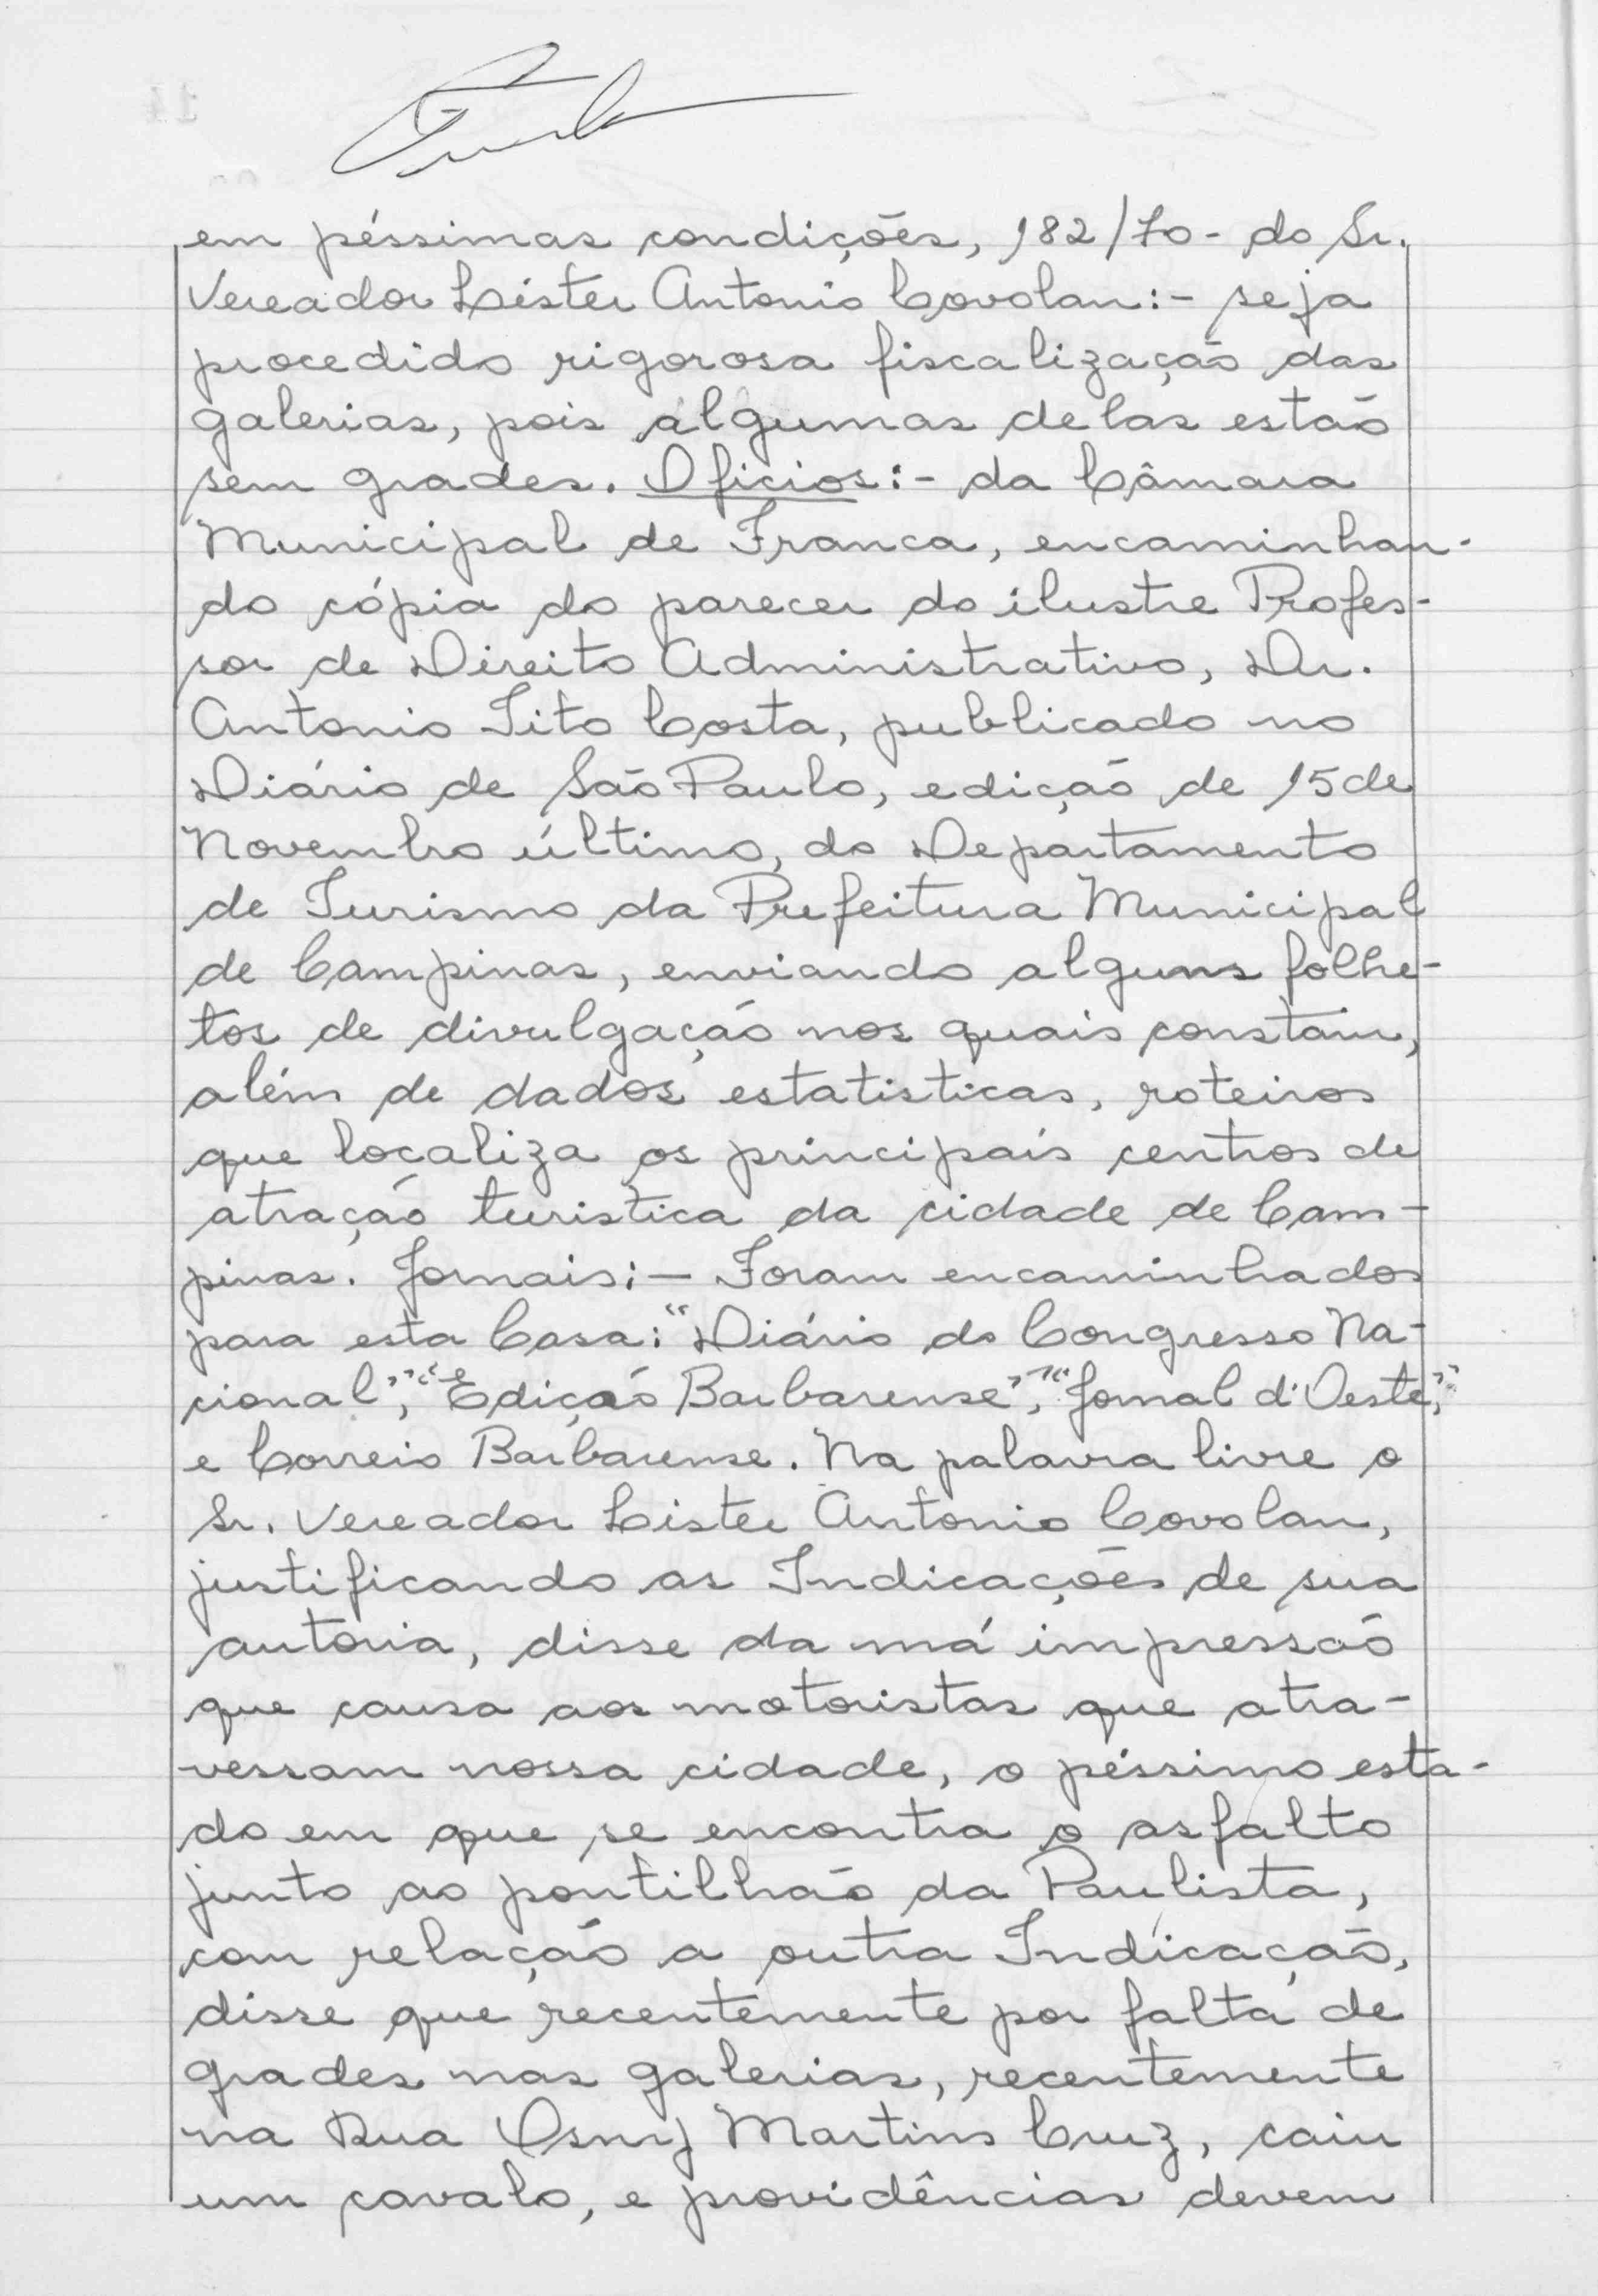 em péssimas condições, 182/70 - do Sr.
Vereador Lister Antonio Covolan:- seja
procedido rigorosa fiscalização das
galerias, pois algumas delas estão
sem grades. Oficios:- da Câmara
Municipal de Franca, encaminhan-
do cópia do parecer do ilustre Profes-
sor de Direito Administrativo, Dr.
Antonio Tito Costa, publicado no
Diário de São Paulo, edição de 15 de
Novembro último, do Departamento
de Turismo da Prefeitura Municipal
de Campinas, enviando alguns folhe-
tos de divulgação nos quais constam,
além de dados estatisticas, roteiros
que localiza os principais centros de
atração turistica da cidade de Cam-
pinas. Jornais:- Foram encaminhados
para esta Casa: "Diário do Congresso Na-
cional", "Edição Barbarense", "Jornal d'Oeste",
e Correio Barbarense. Na palavra livre o
Sr. Vereador Lister Antonio Covolan,
justificando as Indicações de sua
autoria, disse da má impressão
que causa aos motoristas que atra-
vessam nossa cidade, o péssimo esta-
do em que se encontra o asfalto
junto ao pontilhão da Paulista,
com relação a outra Indicação,
disse que recentemente por falta de
grades nas galerias, recentemente
na Rua Osmy Martins Cruz, caiu
um cavalo, e providências devem